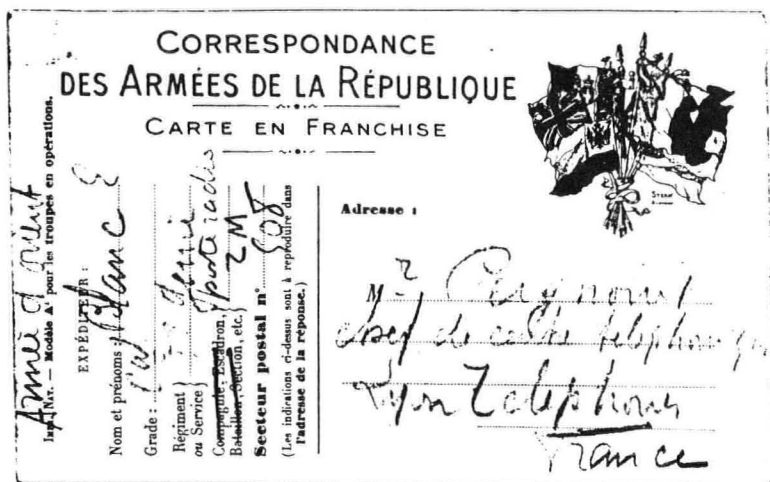 CORRESPONDANCE
DES ARMÉES DE LA RÉPUBLIQUE
CARTE EN FRANCHISE
Armée d'orient
Impr. Nat. — Modèle A¹ pour les troupes en opérations.
EXPÉDITEUR :
Nom et prénoms : Blanc E
Grade :
Régiment ou Service } Génie
Compagnie, Escadron, Bataillon, Section, etc. } poste radio ZM
Secteur postal n° 508
(Les indications ci-dessus sont à reproduire dans
l'adresse de la réponse.)
STERN
Adresse :
Mr
chef de centre téléphonique
Lyon Téléphones
France